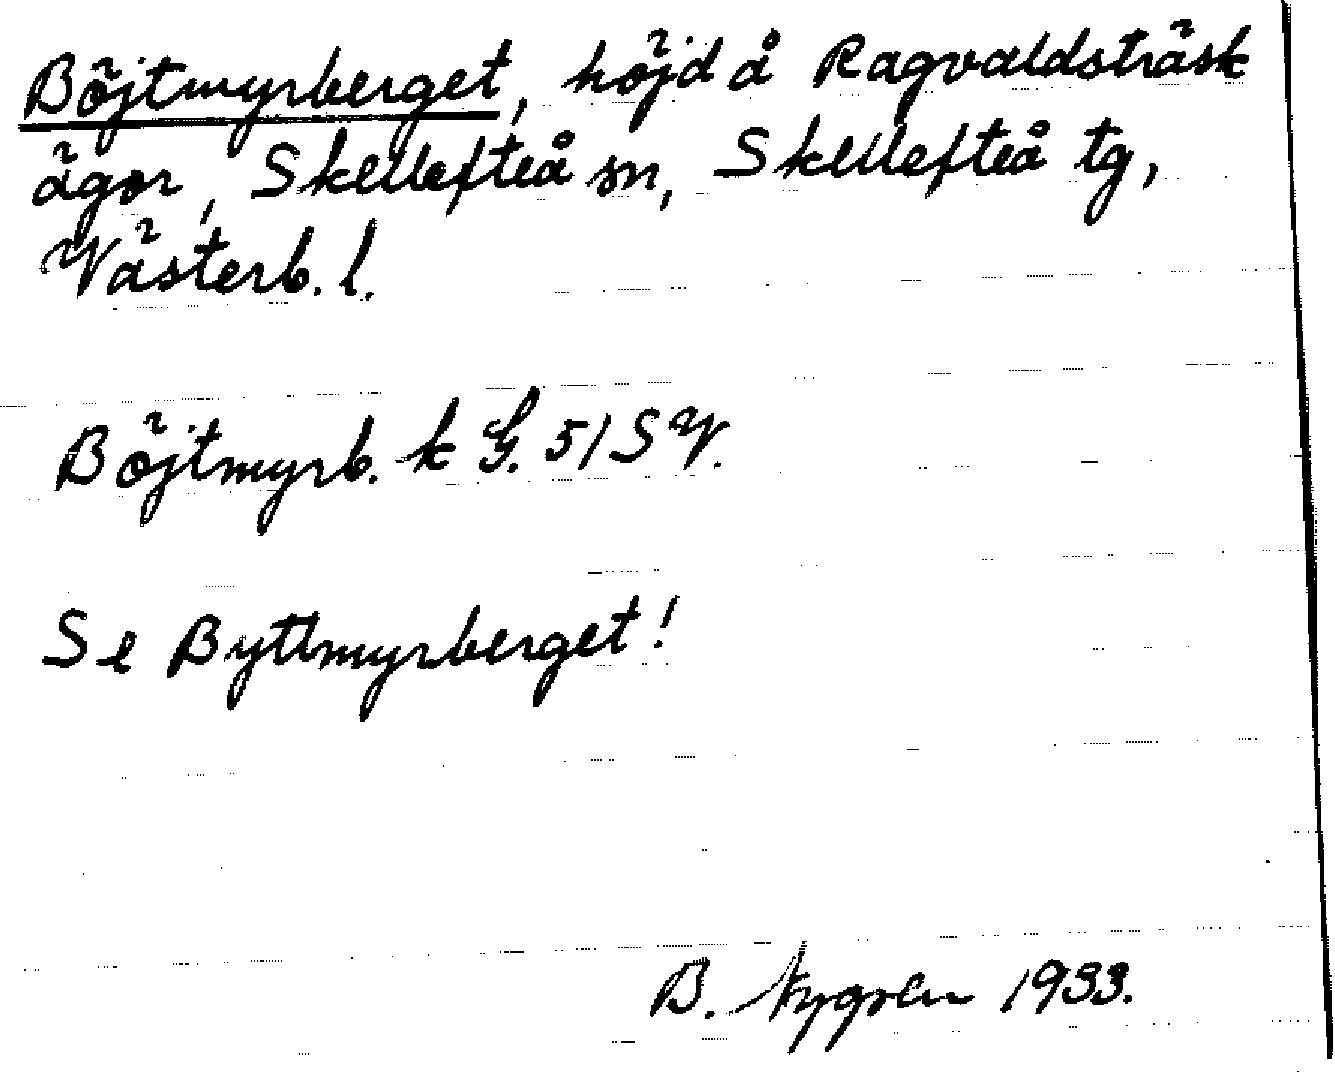 Böjtmyrberget, höjd å Ragvaldsträsk
ägor, Skellefteå sn, Skellefteå tg,
Västerb. l.
Böjtmyrb. k G. 51 SV.
Se Byttmyrberget!
B. Nygren 1933.